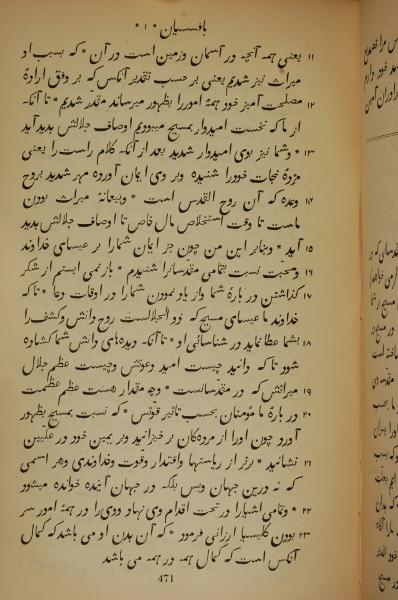 بافسسیان * ۱ *
۱۱ یعنی همه آنچه در آسمان وزمین است در آن * که بسبب او
میراث نیز شدیم یعنی بر حسب تقدیر آنکس که بر وفق ارادهٔ
۱۲ مصلحت آمیز خود همهٔ امور را بظهور میرساند مقدّر شدیم * تا آنکه
از ما که نخست امیدوار بمسیح میبودیم اوصاف جلالش پدید آید
۱۳ * وشما نیز بوی امیدوار شدید بعد از آنکه کلام راست را یعنی
مژدهٔ نجات خود را شنیده وبر وی ایمان آورده مهر شدید بروح
۱۴ وعده که آن روح القدس است * وبیعانهٔ میراث بودن
ماست تا وقت استخلاص مال خاص تا اوصاف جلالش پدید
۱۵ آید * وبنابر این من چون خبر ایمان شما را بر عیسای خداوند
۱۶ ومحبت نسبت بتمامی مقدسانرا شنیدم * باز نمی ایستم از شکر
۱۷ گذاشتن در بارهٔ شما واز یاد نمودن شما را در اوقات دعا * تا که
خداوند ما عیسای مسیح که ذو الجلالست روح دانش وکشف را
۱۸ بشما عطا نماید در شناسائی او * تا آنکه دیده‌های دانش شما کشاده
شود تا که دانید چیست امید دعوتش وچیست عظم جلال
۱۹ میراثش که در مقدسانست * وچه مقدار هست عظم عظمت
۲۰ در بارهٔ ما مؤمنان بحسب تاثیر قوّتش * که نسبت بمسیح بظهور
آورد چون او را از مردگان بر خیزانید وبر یمین خود در علّیین
۲۱ نشانید * برتر از ریاستها واقتدار وقوت وخداوندی وهر اسمی
که نه درین جهان وبس بلکه در جهان آینده خوانده میشود
۲۲ * وتمامی اشیا را در تحت اقدام وی نهاد ووی را در همهٔ امور سر
۲۳ بودن کلیسیا ارزانی فرمود * که آن بدن او می باشد که کمال
آنکس است که کمال همه در همه می باشد
471